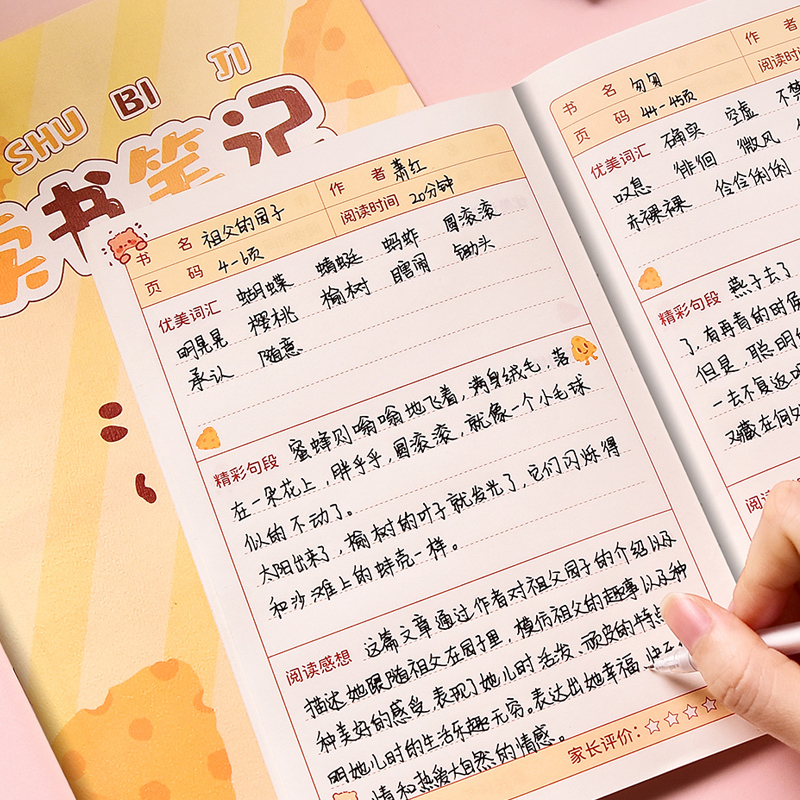 SHU BI JI
读书笔记
书 名 祖父的园子
作 者 萧红
页 码 4-6页
阅读时间 20分钟
优美词汇 蝴蝶 蜻蜓 蚂蚱 圆滚滚
明晃晃 樱桃 榆树 瞎闹 锄头
承认 随意
精彩句段 蜜蜂则嗡嗡地飞着,满身绒毛,落
在一朵花上,胖乎乎,圆滚滚,就像一个小毛球
似的不动了。
太阳出来了,榆树的叶子就发光了,它们闪烁得
和沙滩上的蚌壳一样。
阅读感想 这篇文章通过作者对祖父园子的介绍以及
描述她跟随祖父在园子里,模仿祖父的趣事以及种
种美好的感受,表现了她儿时活泼、顽皮的特点
明她儿时的生活乐趣无穷。表达出她幸福、快
情和热爱大自然的情感。
家长评价:
书 名 匆匆
作 者
页 码 44-45页
阅读时
优美词汇 确实 空虚 不禁
叹息 徘徊 微风
赤裸裸 伶伶俐俐
精彩句段 燕子去了
了,有再青的时候
但是,聪明的
一去不复返呢
又藏在何处
阅读